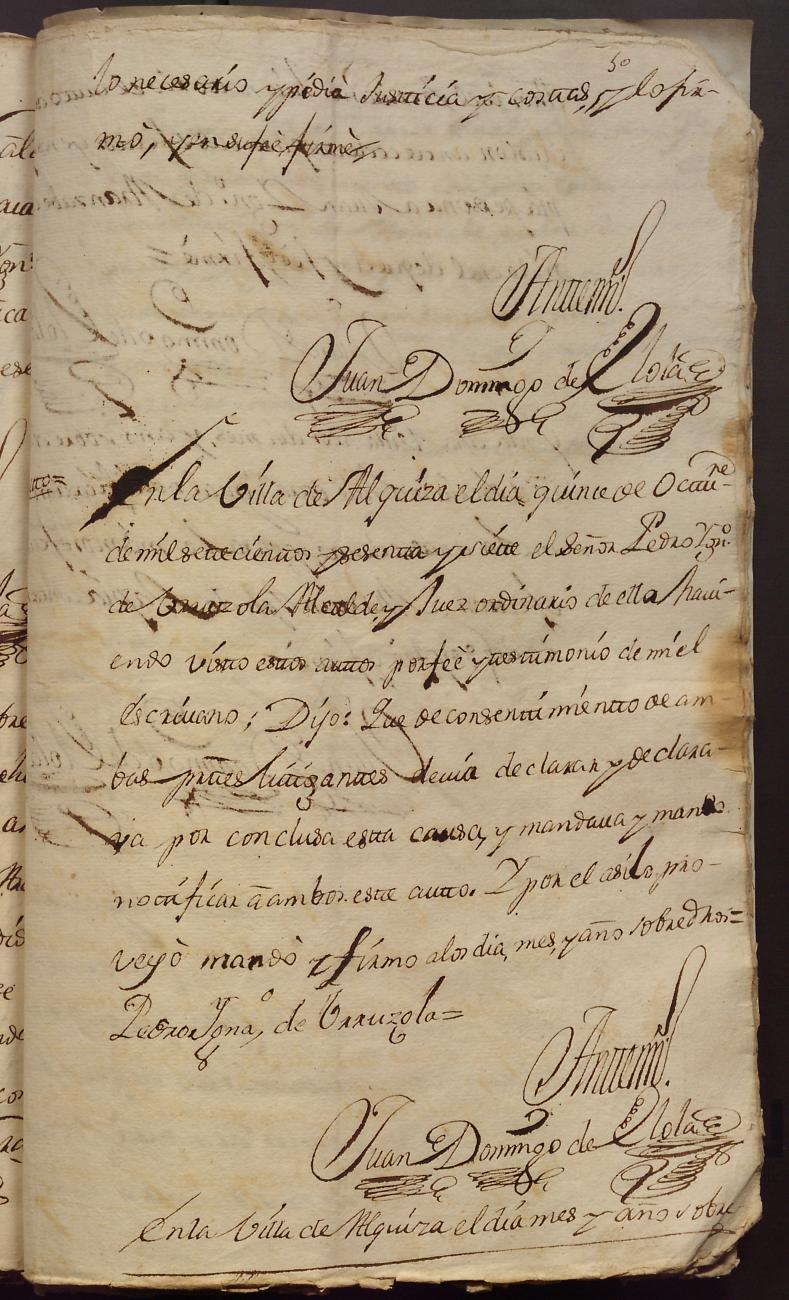 50
lo necesario y pidiò Justicia y costas, y lo fir-
mò, y en su feè firmè
Antemi.
Juan Domingo de Elola
En la Villa de Alquiza el dia quince de Octtu.re
de mil settecienttos y sesenta y siette el Señor Pedro Ygn.o
de Urruzola Alcalde, y Juez ordinario de ella havi-
endo visto estos auttos por feè y testimonio de mi el
escrivano; Dijo: Que de consentimientto de am-
bas parttes litigantes devia declarar y declara-
va por conclusa estta causa, y mandava y mando
notificar à ambos este autto. Y por el asi lo pro-
veyò mandò y firmo a los dia, mes, y año sobredhos=
Pedro Ygna.o de Urruzola=
Antemi.
Juan Domingo de Elola
En la Villa de Alquiza el dia mes y año sobre